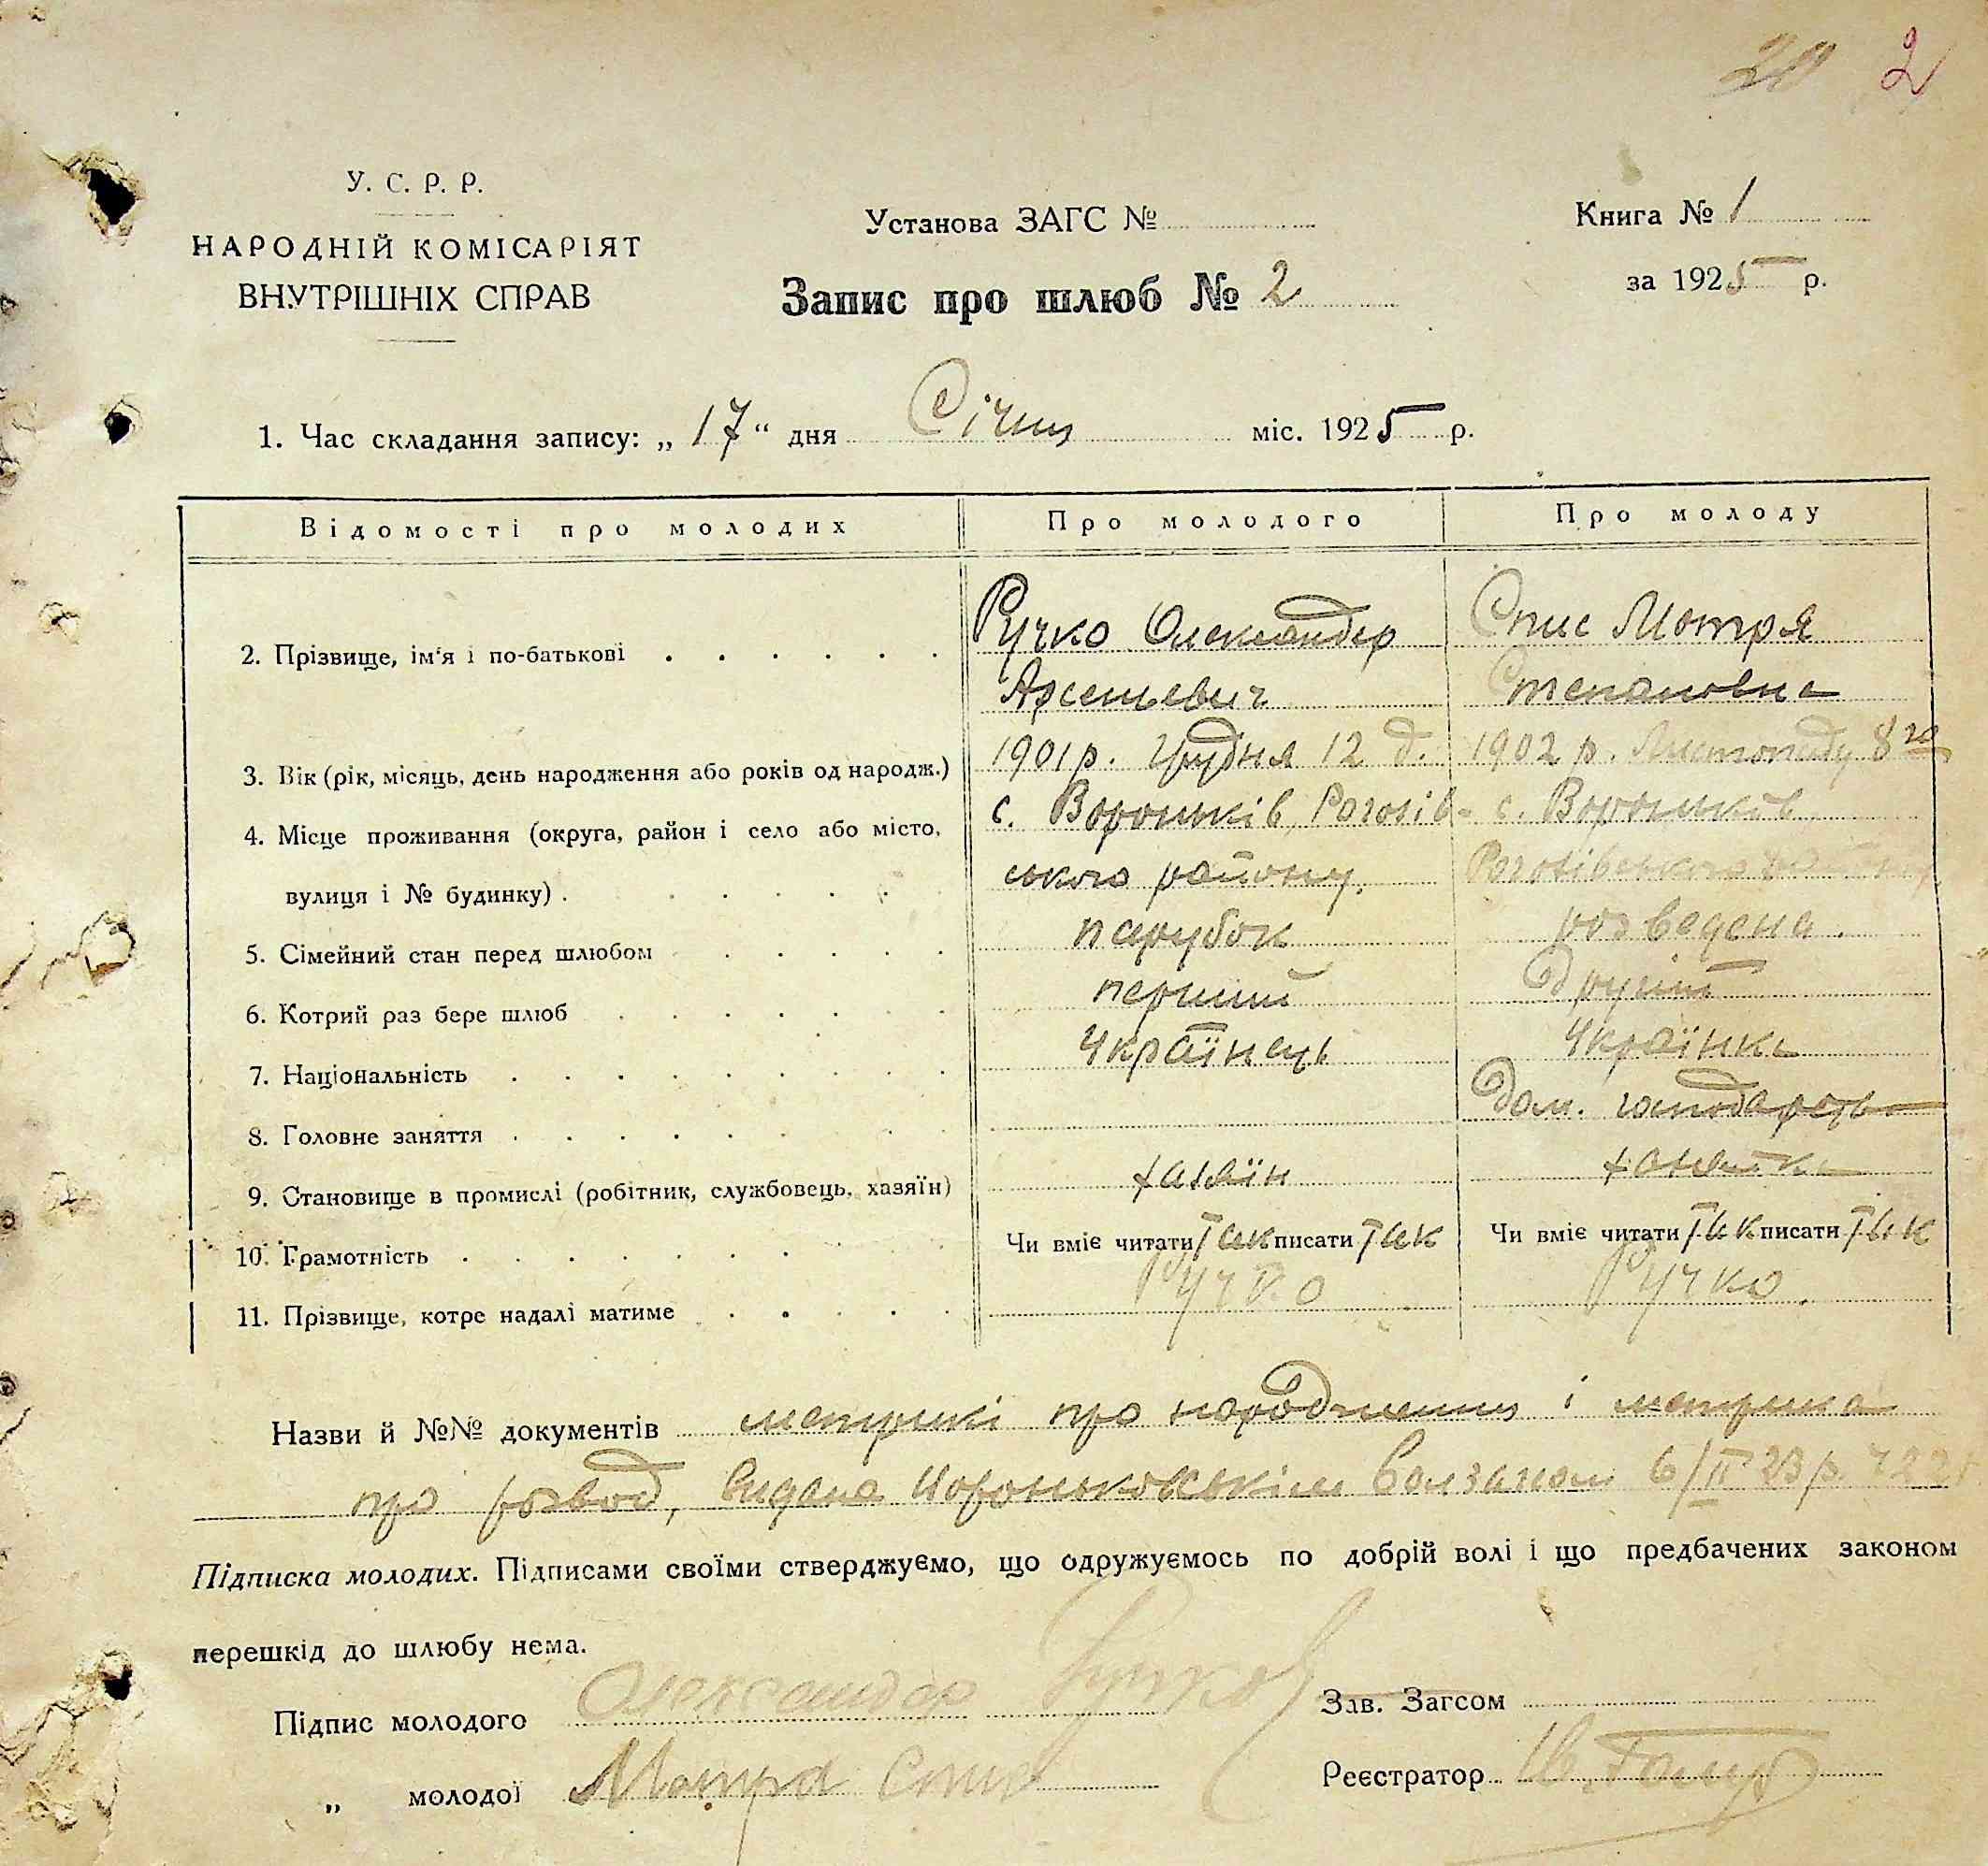 20 2
У. С. Р. Р.
НАРОДНІЙ КОМІСАРІЯТ
ВНУТРІШНІХ СПРАВ
Установа ЗАГС №
Запис про шлюб № 2
Книга № 1
за 1925 р.
1. Час складання запису: „ 17 “ дня Січня міс. 1925 р.
Відомості про молодих Про молодого Про молоду
2. Прізвище, ім'я і по-батькові Ручко Олександер Спис Мотря
Арсеньевич Степановна
3. Вік (рік, місяць, день народження або років од народж.) 1901 р. Грудня 12 д. 1902 р. Листопаду 8го
4. Місце проживання (округа, район і село або місто, с. Вороньків, Рогозів- с. Вороньків
вулиця і № будинку) ського району. Рогозівського району
5. Сімейний стан перед шлюбом парубок розведена.
6. Котрий раз бере шлюб перший другий
7. Національність Українець Українка
8. Головне заняття Дом. господарство
9. Становище в промислі (робітник, службовець, хазяїн) хазяїн хазяйка
10. Грамотність Чи вміє читати Так писати Так Чи вміє читати Так писати Так
11. Прізвище, котре надалі матиме Ручко Ручко.
Назви й №№ документів метрикі про народження і метрика
про розвод, видана Вороньковським 6/II 23 р.
Підписка молодих. Підписами своїми стверджуємо, що одружуємось по добрій волі і що предбачених законом
перешкід до шлюбу нема.
Підпис молодого Олександер Ручко Зав. Загсом
„ молодої Мотря Спис Реєстратор